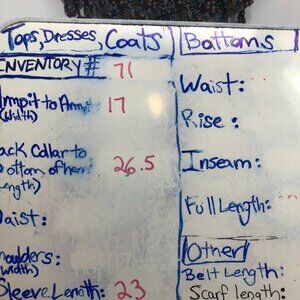 Tops, Dresses, Coats
INVENTORY # 71
Armpit to Armpit 17
(width)
ack Collar to
ottom of hem: 26.5
length)
aist:
houlders:
width)
Sleeve Length: 23
Bottoms
Waist:
Rise:
Inseam:
Full Length:
Other
Belt Length:
Scarf length: